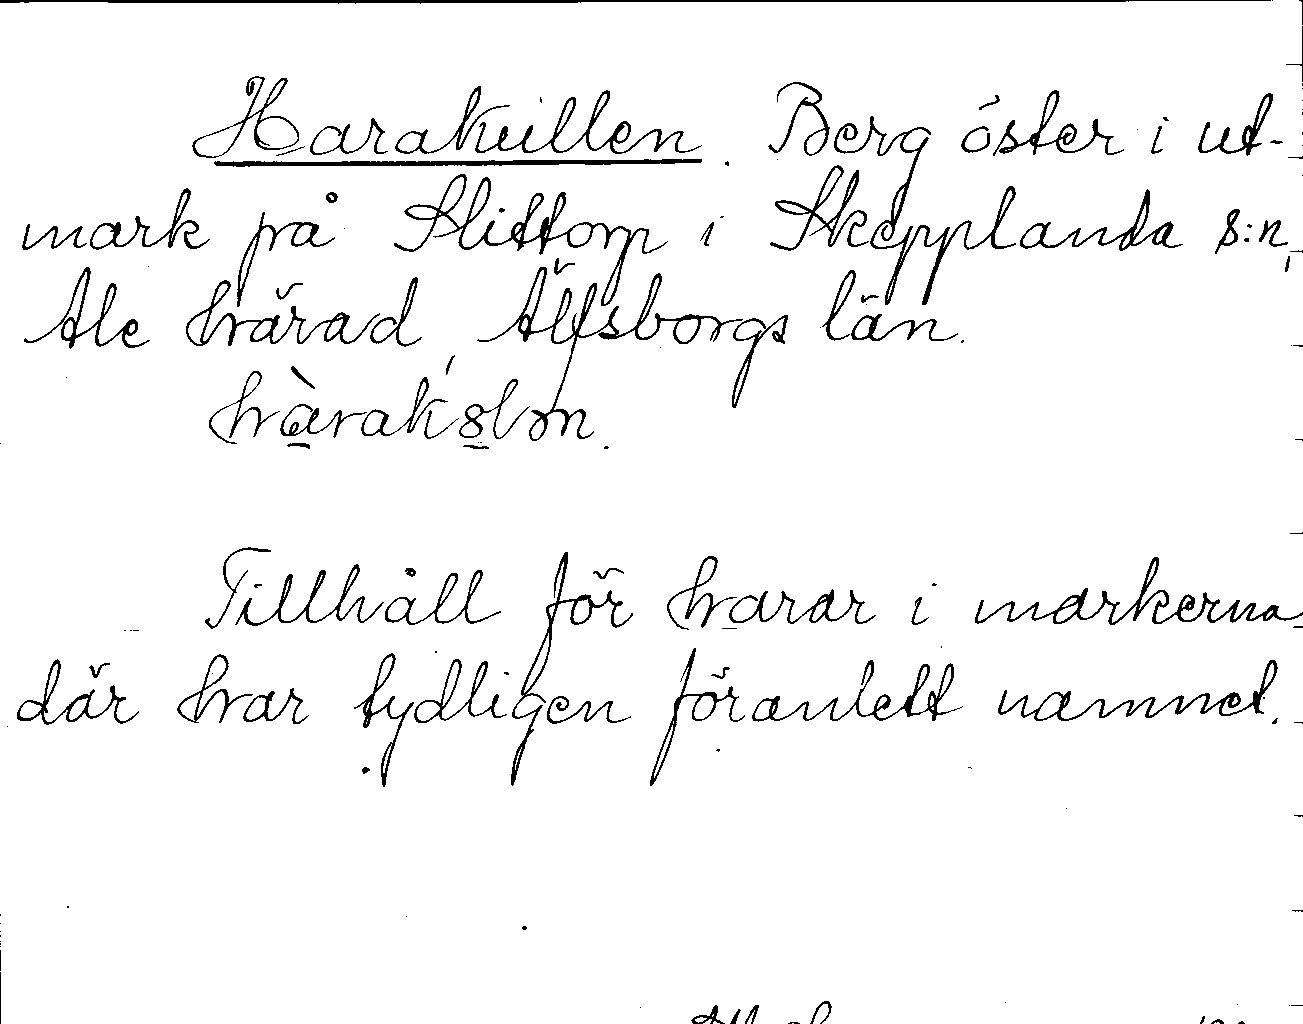 Harakullen. Berg öster i ut-
mark på Slittorp i Skepplanda s:n,
Ale härad, Älfsborgs län.
Tillhåll för harar i markerna
där har tydligen föranlett namnet.